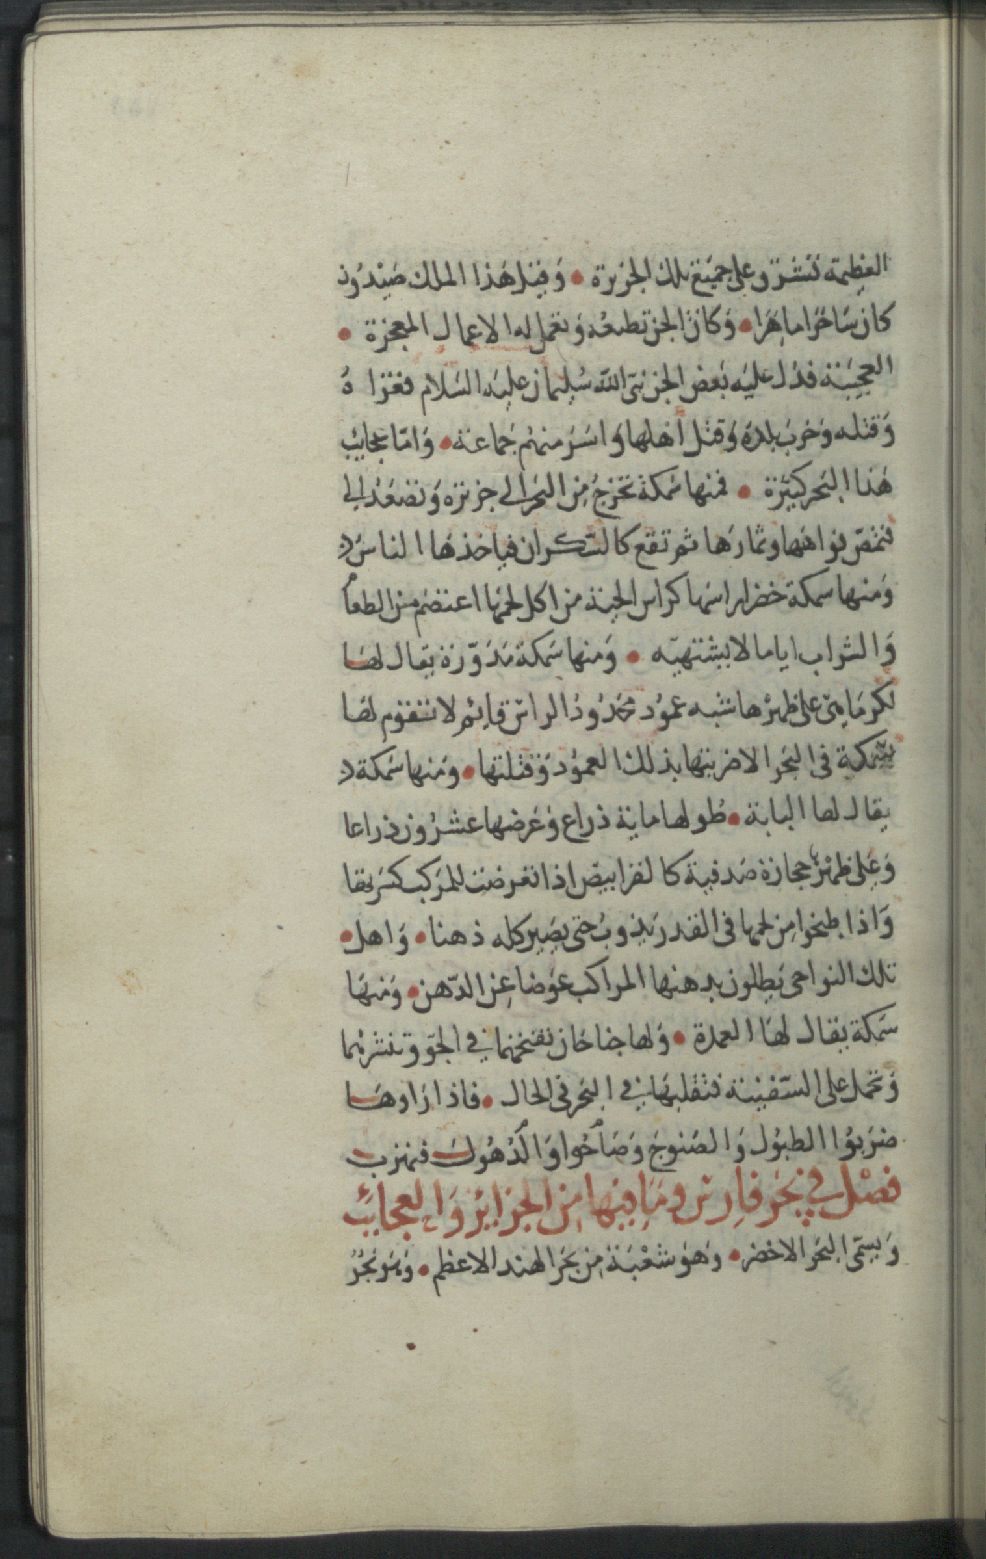 العظيمة تشرق على جميع تلك الجزيرة • وقيل هذا الملك صيدون
كان ساحرا ماهرا • وكان الجن تطيعه وتعمل له الاعمال المعجزة •
العجيبة فدل عليه بعض الجن نبي الله سليمان عليه السلام فغزا ه
وقتله وخرب بلده وقتل أهلها واسر منهم جماعة • وامّا عجايب
هذا البحر كثيرة • فمنها سمكة تخرج من البحر الى جزيرة وتصعد الى
فتمص فواكهها وثمارها ثم تقع كالسكران فياخذها الناس
ومنها سمكة خضرا راسها كراس الحية من اكل لحمها اعتصم من الطعام
والشراب اياما لا يشتهيه • ومنها سمكة مدوّرة يقال لها
لكرماهى على ظهرها شبه عمود محدود الراس قايم لا تقوم لها
سمكة فى البحر الا ضربتها بذلك العمود وقتلتها • ومنها سمكة
يقال لها البابة • طولها ماية ذراع وعرضها عشرون ذراعا
وعلى ظهرها حجارة صدفية كا لقرابيض اذا تعرضت للمركب كسرتها
واذا طبخوا من لحمها فى القدر يذوب حتى يصير كله دهنا • واهل •
تلك النواحى يطلون بدهنها المراكب عوضا عن الدّهن • ومنها
سمكة يقال لها العمدة • ولها جناحان تفتحهما في الجو وتنشرهما
وتحمل على السّفينة فتقلبها في البحر فى الحال • فاذا راوها
ضربوا الطبول والصنوج وصاحوا والدهول فتهرب
فصل في بحر فارس وما فيها من الجزاير والعجايب
ويسمّى البحر الاخضر • وهو شعبة من بحر الهند الاعظم • وهو بحر